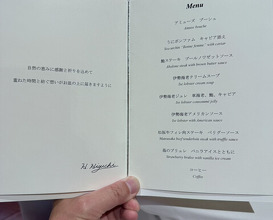 自然の恵みに感謝と祈りを込めて
重ねた時間と紡ぐ想いがお皿の上に届きますように
H. Higuchi
Menu
アミューズ ブーシュ
Amuse bouche
うにボンファム キャビア添え
Sea urchin "Bonne femme" with caviar
鮑ステーキ ブールノワゼットソース
Abalone steak with brown butter sauce
伊勢海老クリームスープ
Ise lobster cream soup
伊勢海老ジュレ 車海老、鮑、キャビア
Ise lobster consommé jelly
伊勢海老アメリカンソース
Ise lobster with American sauce
松阪牛フィレ肉ステーキ ペリグーソース
Matsusaka beef tenderloin steak with truffle sauce
苺のフランベ バニラアイスとともに
Strawberry flambé with vanilla ice cream
コーヒー
Coffee